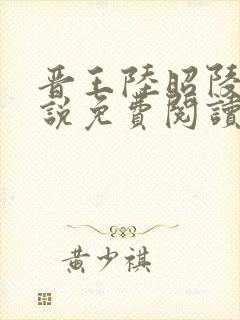 晋王陸昭陵
說免費閱讀
黄少祺